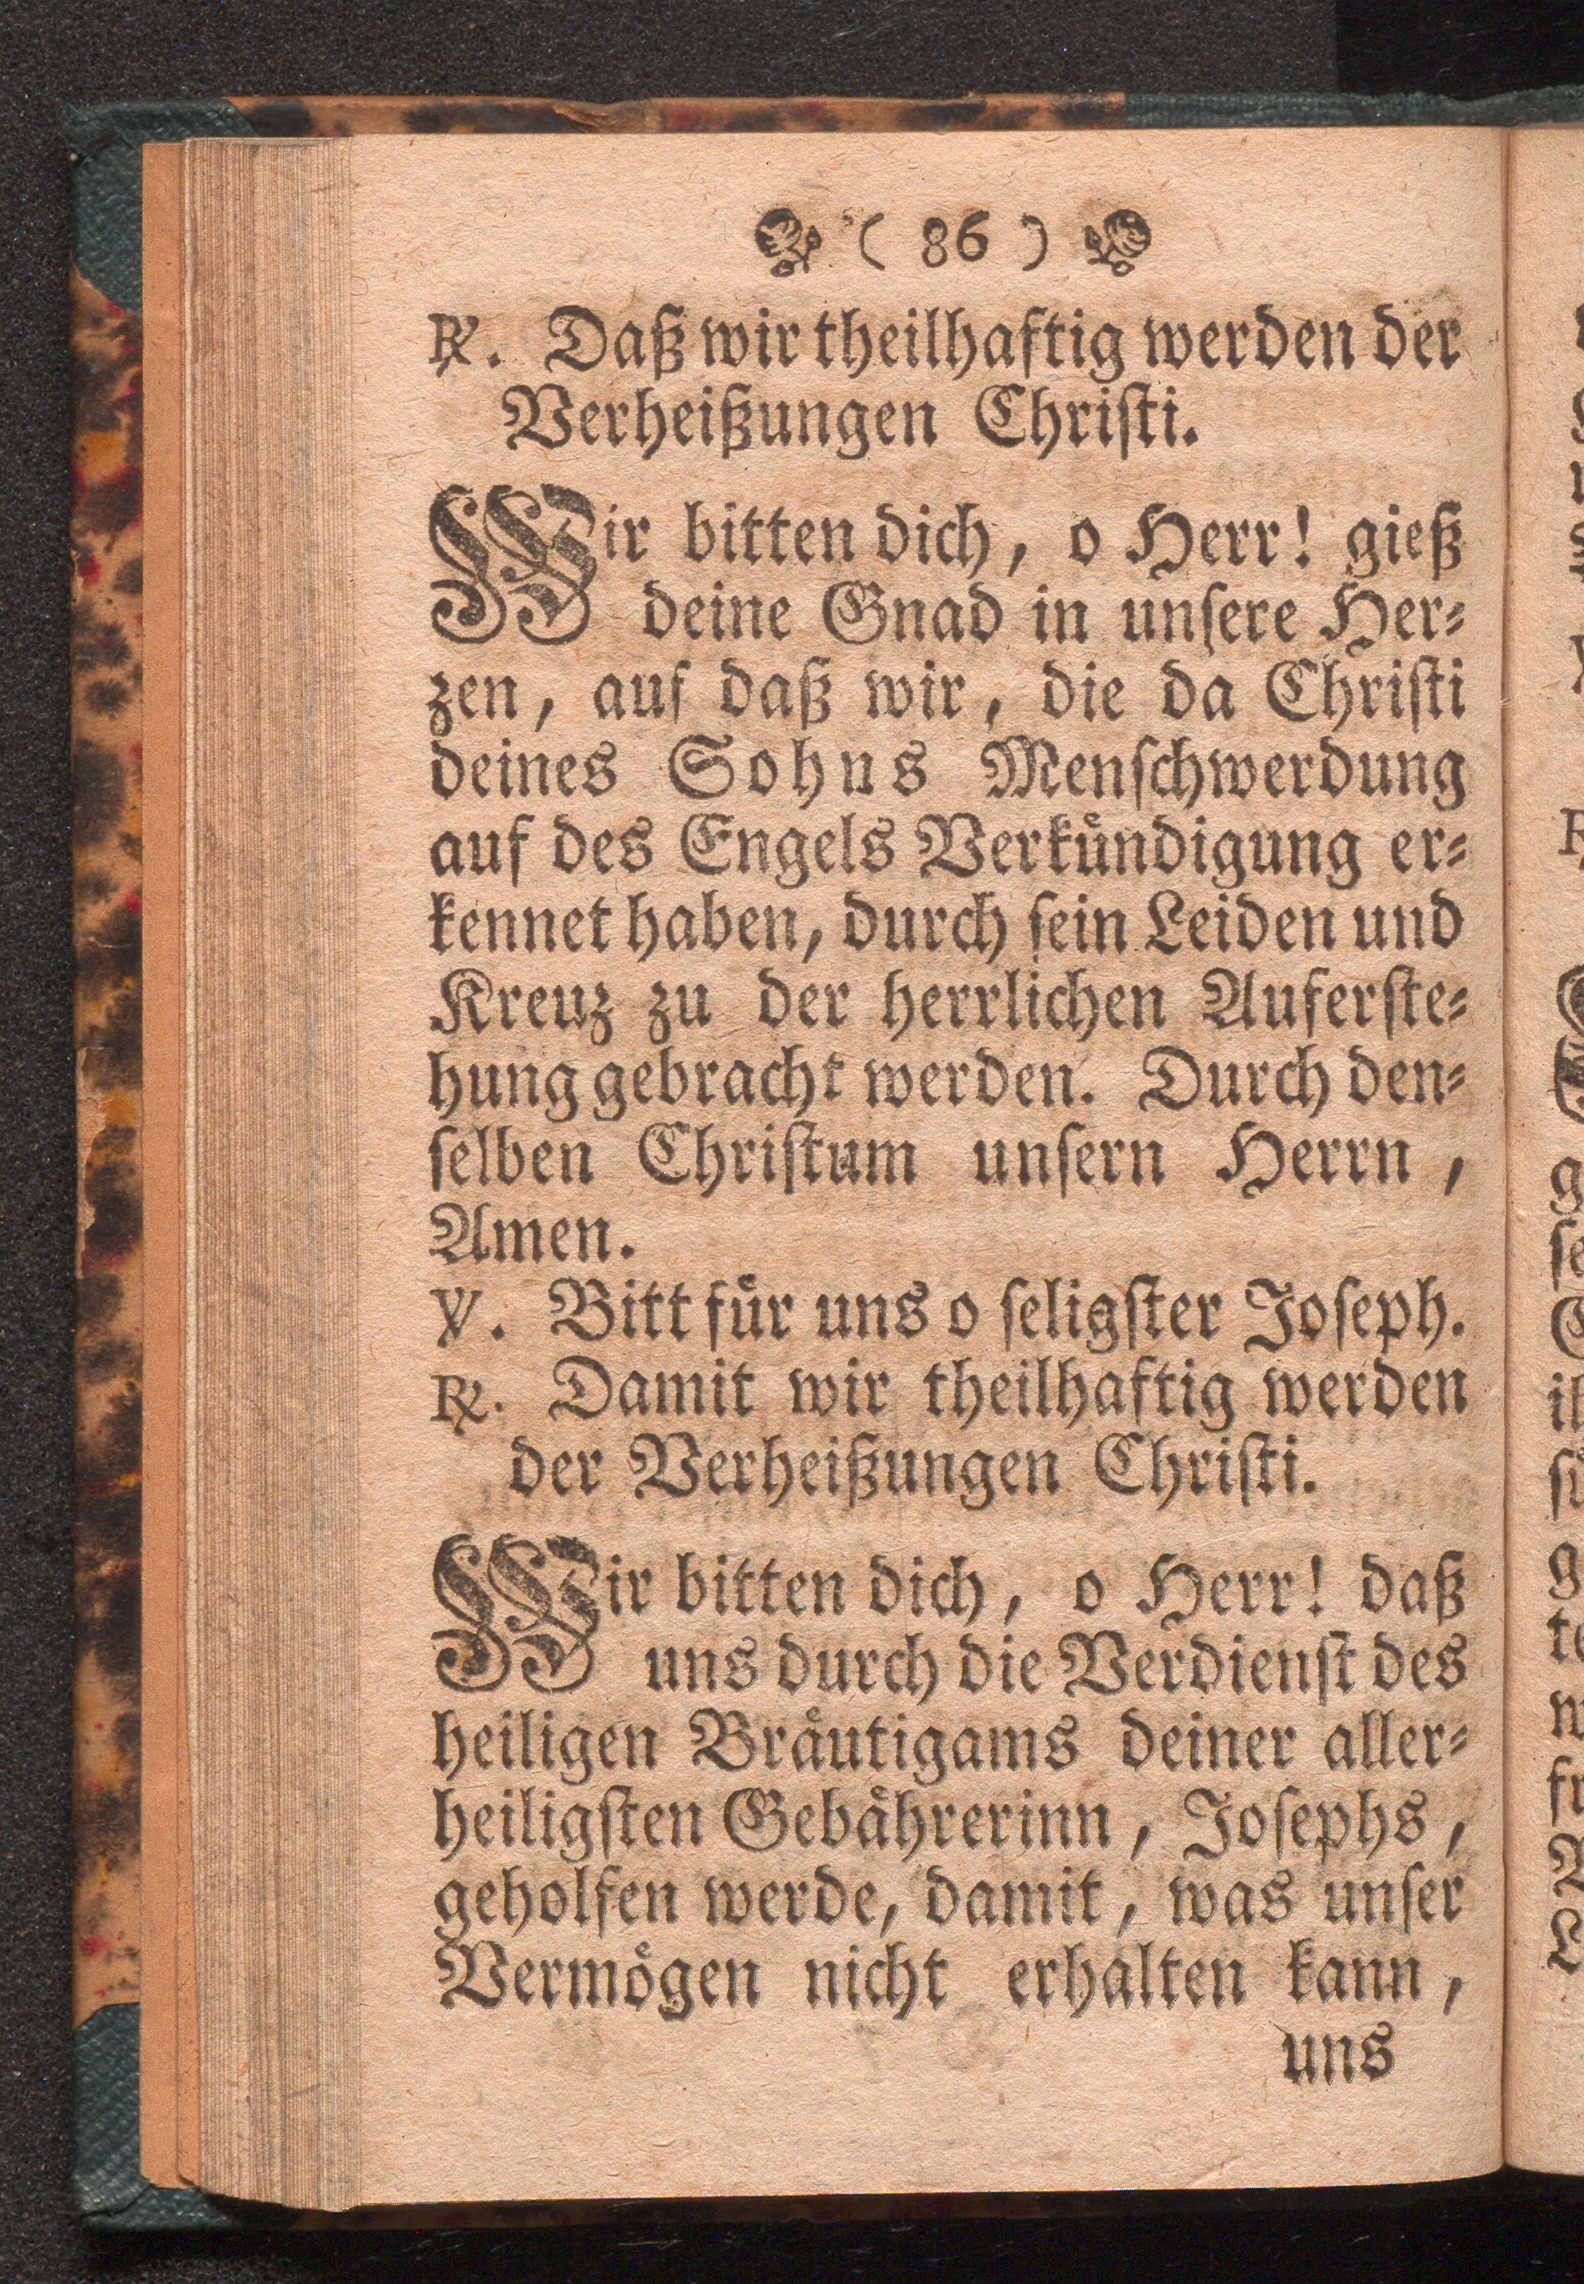 ( 86 )
℟. Daß wir theilhaftig werden der
Verheißungen Chriſti.
Wir bitten dich, o Herr! gieß
deine Gnad in unſere Her⸗
zen, auf daß wir, die da Chriſti
deines Sohns Menſchwerdung
auf des Engels Verkuͤndigung er⸗
kennet haben, durch ſein Leiden und
Kreuz zu der herrlichen Auferſte⸗
hung gebracht werden. Durch den⸗
ſelben Chriſtum unſern Herrn,
Amen.
℣. Bitt fuͤr uns o ſeligſter Joſeph.
℟. Damit wir theilhaftig werden
der Verheißungen Chriſti.
Wir bitten dich, o Herr! daß
uns durch die Verdienſt des
heiligen Braͤutigams deiner aller⸗
heiligſten Gebaͤhrerinn, Joſephs,
geholfen werde, damit, was unſer
Vermoͤgen nicht erhalten kann,
uns